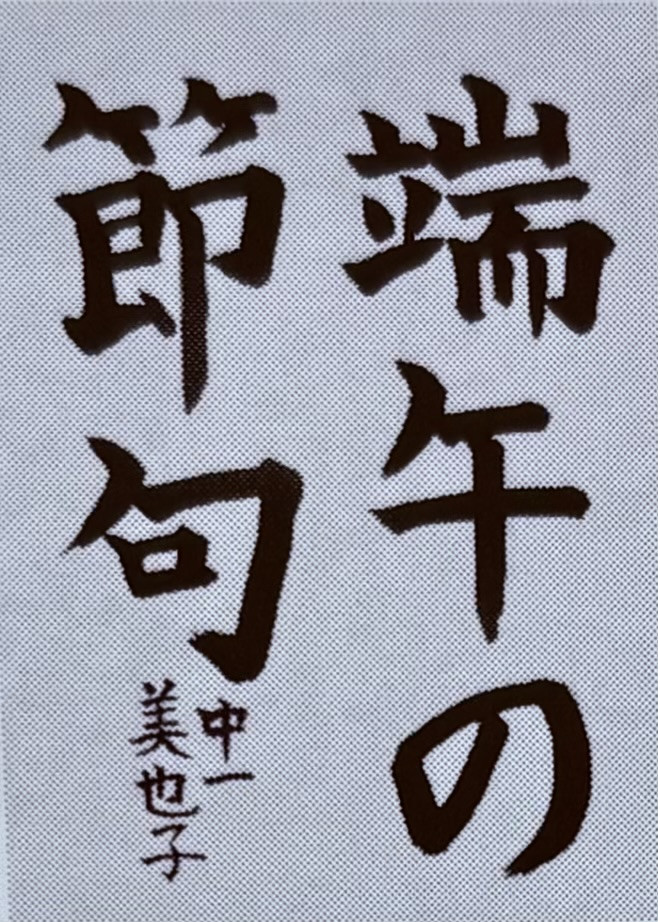 端午の
節句
中一
美也子